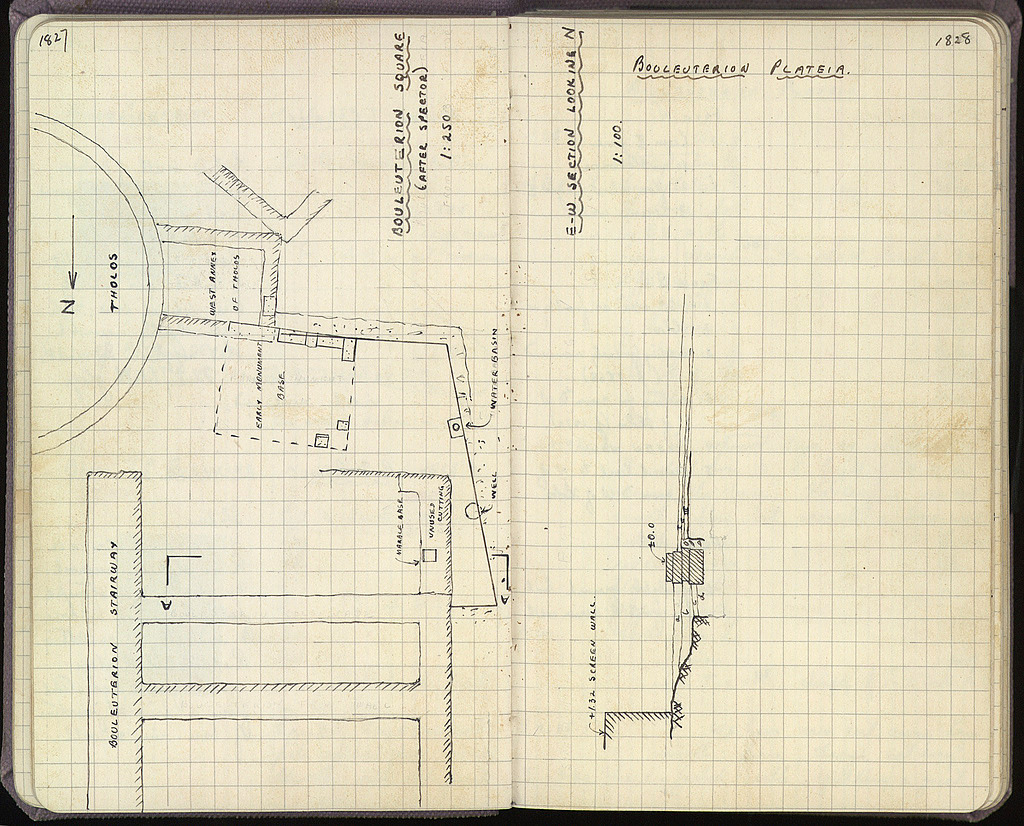 1827
BOULEUTERION SQUARE
(AFTER SPECTOR)
1:250
N
THOLOS
WEST ANNEX
OF THOLOS
EARLY MONUMENT
BASE
WATER BASIN
WELL
MARBLE BASE
UNUSED
CUTTING
BOULEUTERION STAIRWAY
A
A
1828
BOULEUTERION PLATEIA.
E-W SECTION LOOKING N
1:100.
±0.0
+1.32 SCREEN WALL.
a
b
c
d